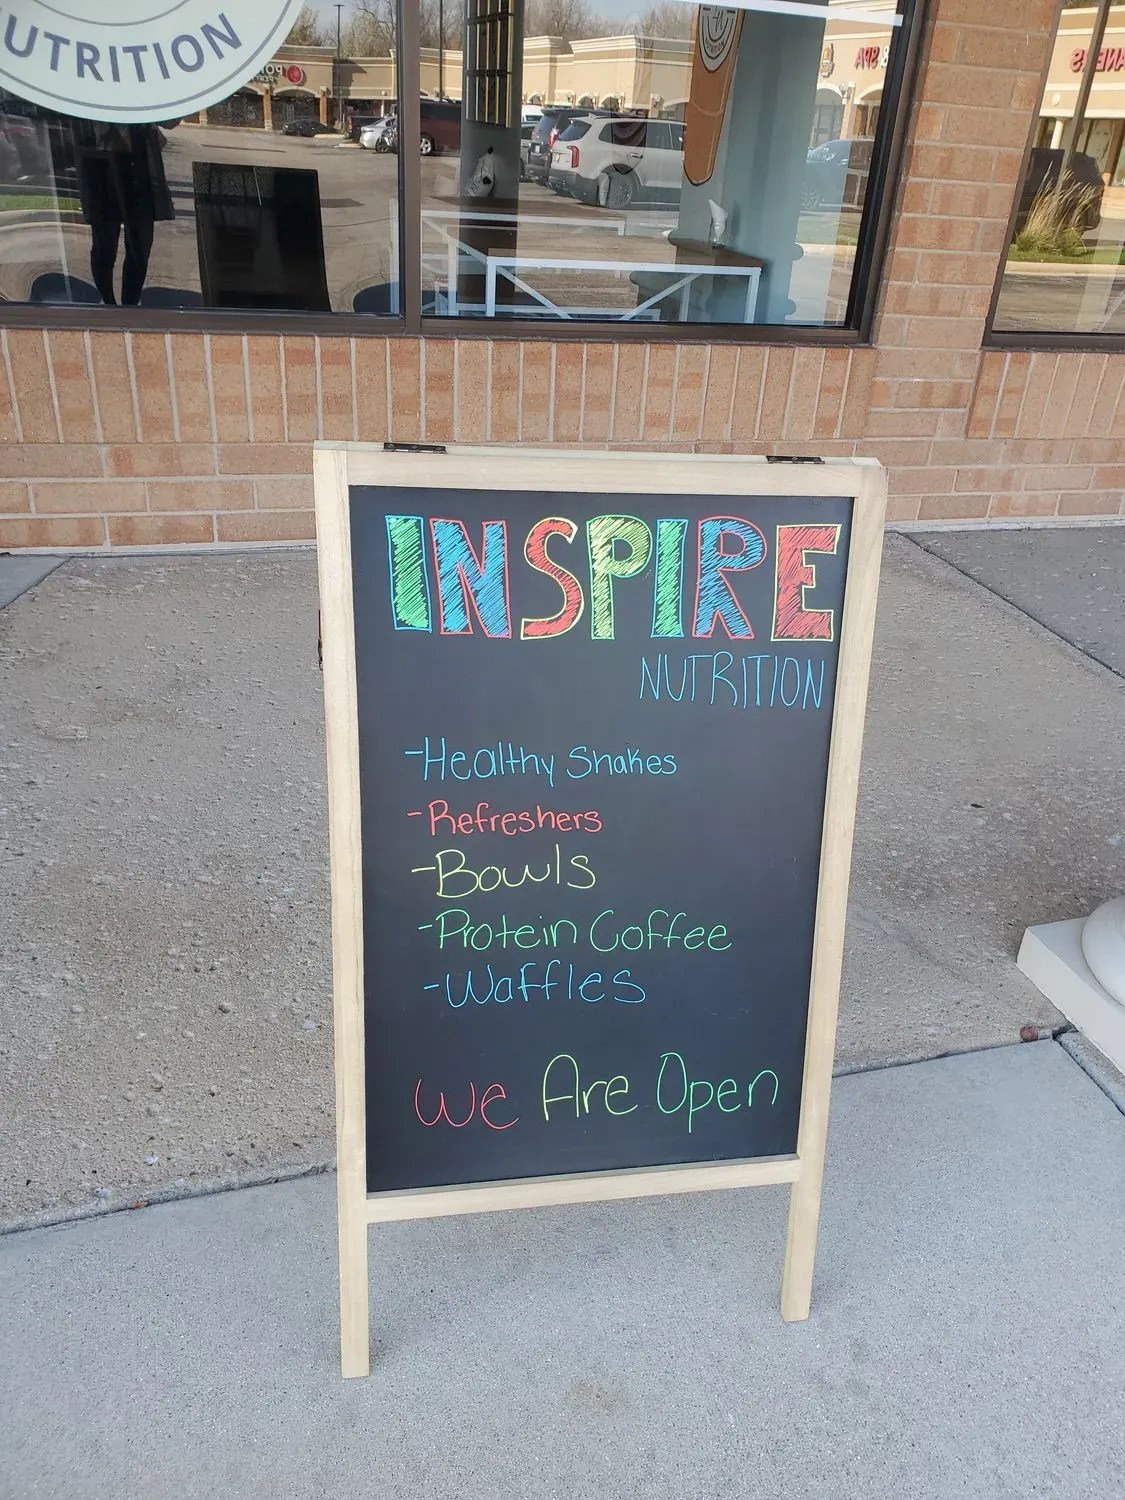 UTRITION
SPA
ANERS
INSPIRE
NUTRITION
-Healthy Shakes
-Refreshers
-Bowls
-Protein Coffee
-Waffles
We Are Open